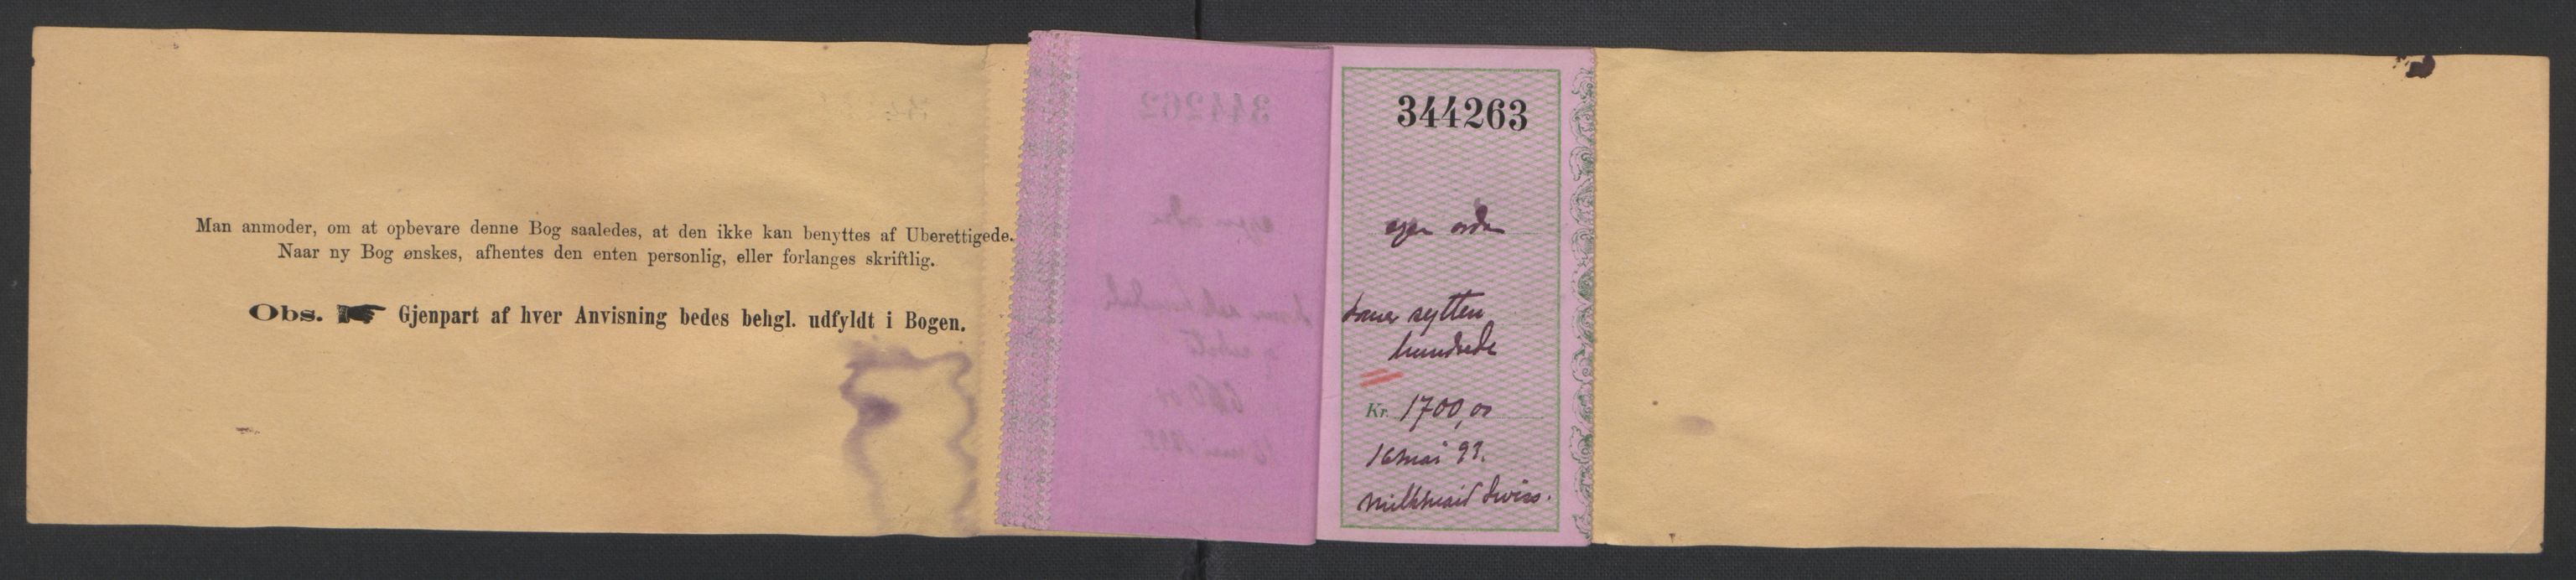 Man anmoder, om at opbevare denne Bog saaledes, at den ikke kan benyttes af Uberettigede.
Naar ny Bog ønskes, afhentes den enten personlig, eller forlanges skriftlig.
Obs. Gjenpart af hver Anvisning bedes behgl. udfyldt i Bogen.
344262
344263
egen ordre
kroner sytten
hundrede
Kr. 1700,00
16 mai 93.
Milkmaid Swiss.